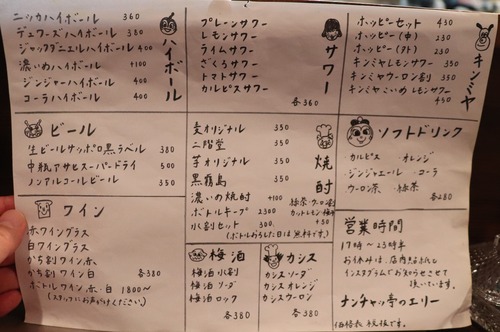 ハイボール
ニッカハイボール 360
デュワーズハイボール 380
ジャックダニエルハイボール 400
濃いめハイボール +100
ジンジャーハイボール 400
コーラハイボール 400
サワー
プレーンサワー
レモンサワー
ライムサワー
ざくろサワー
トマトサワー
カルピスサワー
各360
キンミヤ
ホッピーセット 450
ホッピー(中) 230
ホッピー(外) 230
キンミヤレモンサワー
キンミヤウーロン割
キンミヤこいめレモンサワー
各450
ビール
生ビールサッポロ黒ラベル 380
中瓶アサヒスーパードライ 500
ノンアルコールビール 350
焼酎
麦オリジナル 350
二階堂 350
芋オリジナル 350
黒霧島 350
濃いめ焼酎 +100
ボトルキープ 2300
水割セット 300
緑茶・ウーロン割
カットレモン・梅干
+50
(ボトルおろした日は無料です。)
ソフトドリンク
カルピス ・オレンジ
ジンジャエール ・コーラ
ウーロン茶 ・緑茶
各280
ワイン
赤ワイングラス
白ワイングラス
かち割ワイン赤
かち割ワイン白 各380
ボトルワイン赤・白 1800〜
(スタッフにお声がけください。)
梅酒
梅酒水割
梅酒ソーダ
梅酒ロック
各380
カシス
カシスソーダ
カシスオレンジ
カシスウーロン
各380
営業時間
17時〜23時半
お休みは、店内又は
インスタグラムでお知らせさせて
頂いています。
ナンチャッ亭のエリー
価格表 税抜です。